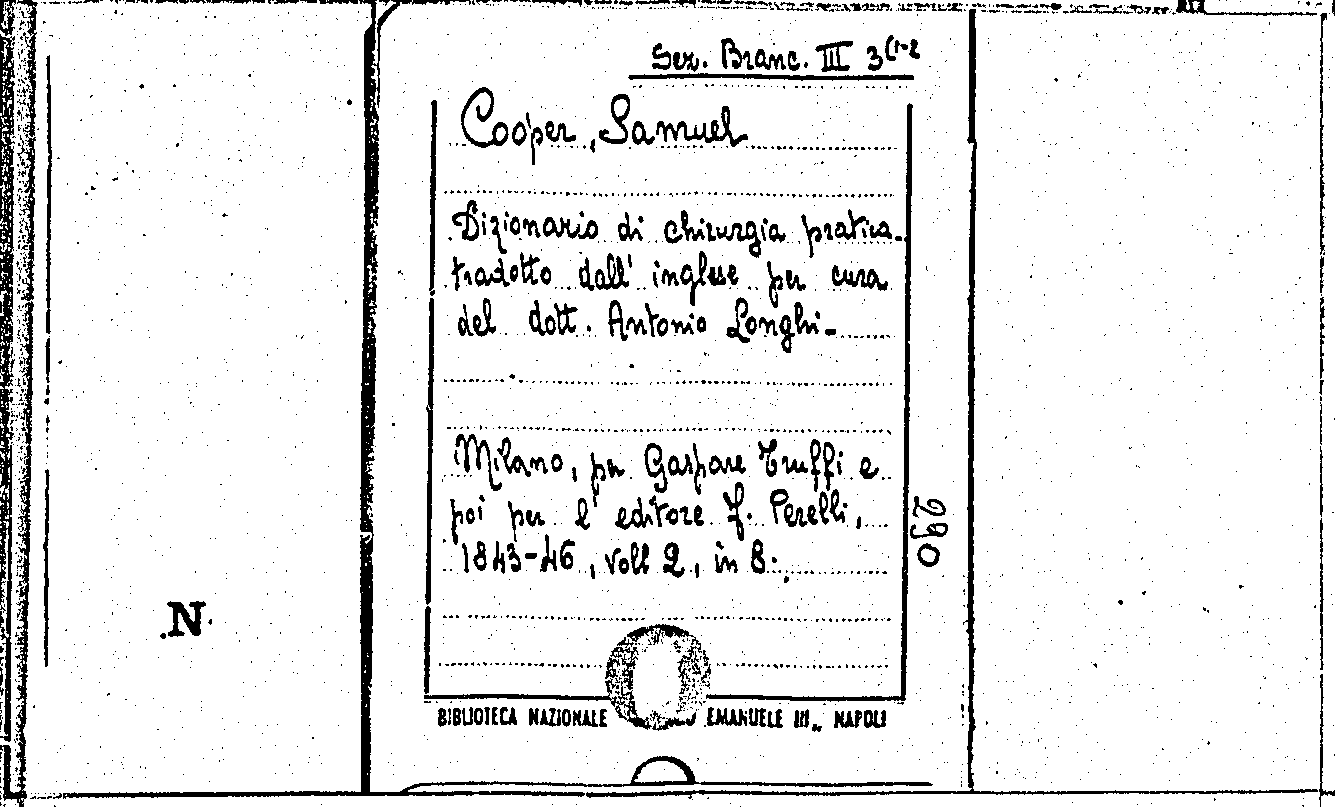 Sez. Branc. III 3(1-2
Cooper, Samuel
Dizionario di chirurgia pratica
tradotto dall' inglese per cura
del dott. Antonio Longhi-
Milano, per Gaspare Truffi e
poi per l' editore F. Perelli,
1843-46, voll 2, in 8.
290
N
BIBLIOTECA NAZIONALE EMANUELE III„ NAPOLI